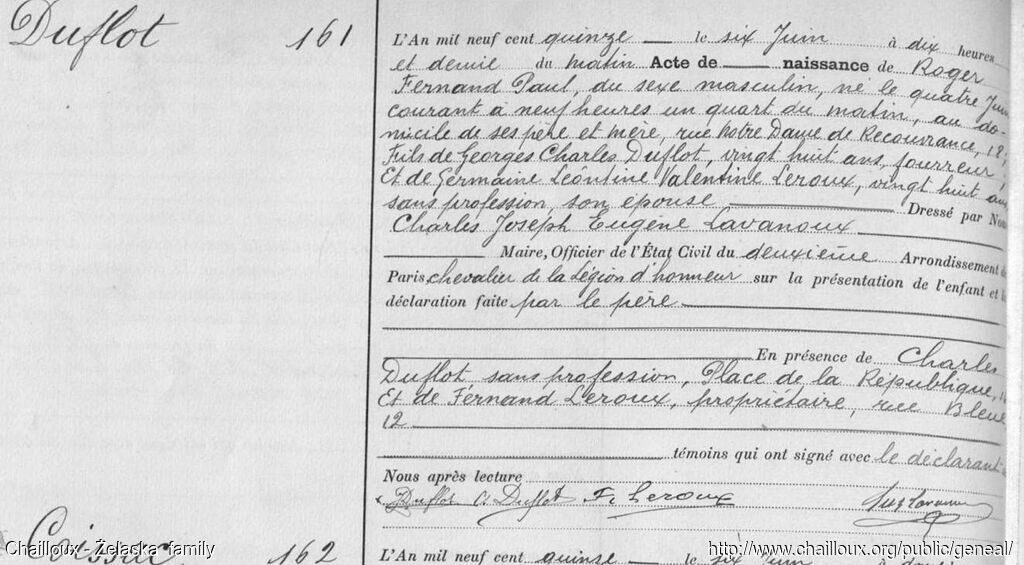 Duflot 161
L'An mil neuf cent quinze le six Juin à dix heures
et demie du matin Acte de naissance de Roger
Fernand Paul, du sexe masculin, né le quatre Juin
courant à neuf heures un quart du matin, au do-
micile de ses père et mère, rue Notre Dame de Recouvrance, 18;
Fils de Georges Charles Duflot, vingt huit ans, fourreur;
Et de Germaine Léontine Valentine Leroux, vingt huit ans
sans profession, son épouse, Dressé par Nous
Charles Joseph Eugène Lavanoux
Maire, Officier de l'État Civil du deuxième Arrondissement de
Paris, chevalier de la Légion d'honneur sur la présentation de l'enfant et la
déclaration faite par le père
En présence de Charles
Duflot, sans profession, Place de la République,
Et de Fernand Leroux, propriétaire, rue Bleue
12
témoins qui ont signé avec le déclarant &
Nous après lecture
Duflot C. Duflot F. Leroux
Coissac 162
L'An mil neuf cent quinze le six Juin à
Chailloux - Zelaska family
http://www.chailloux.org/public/geneal/